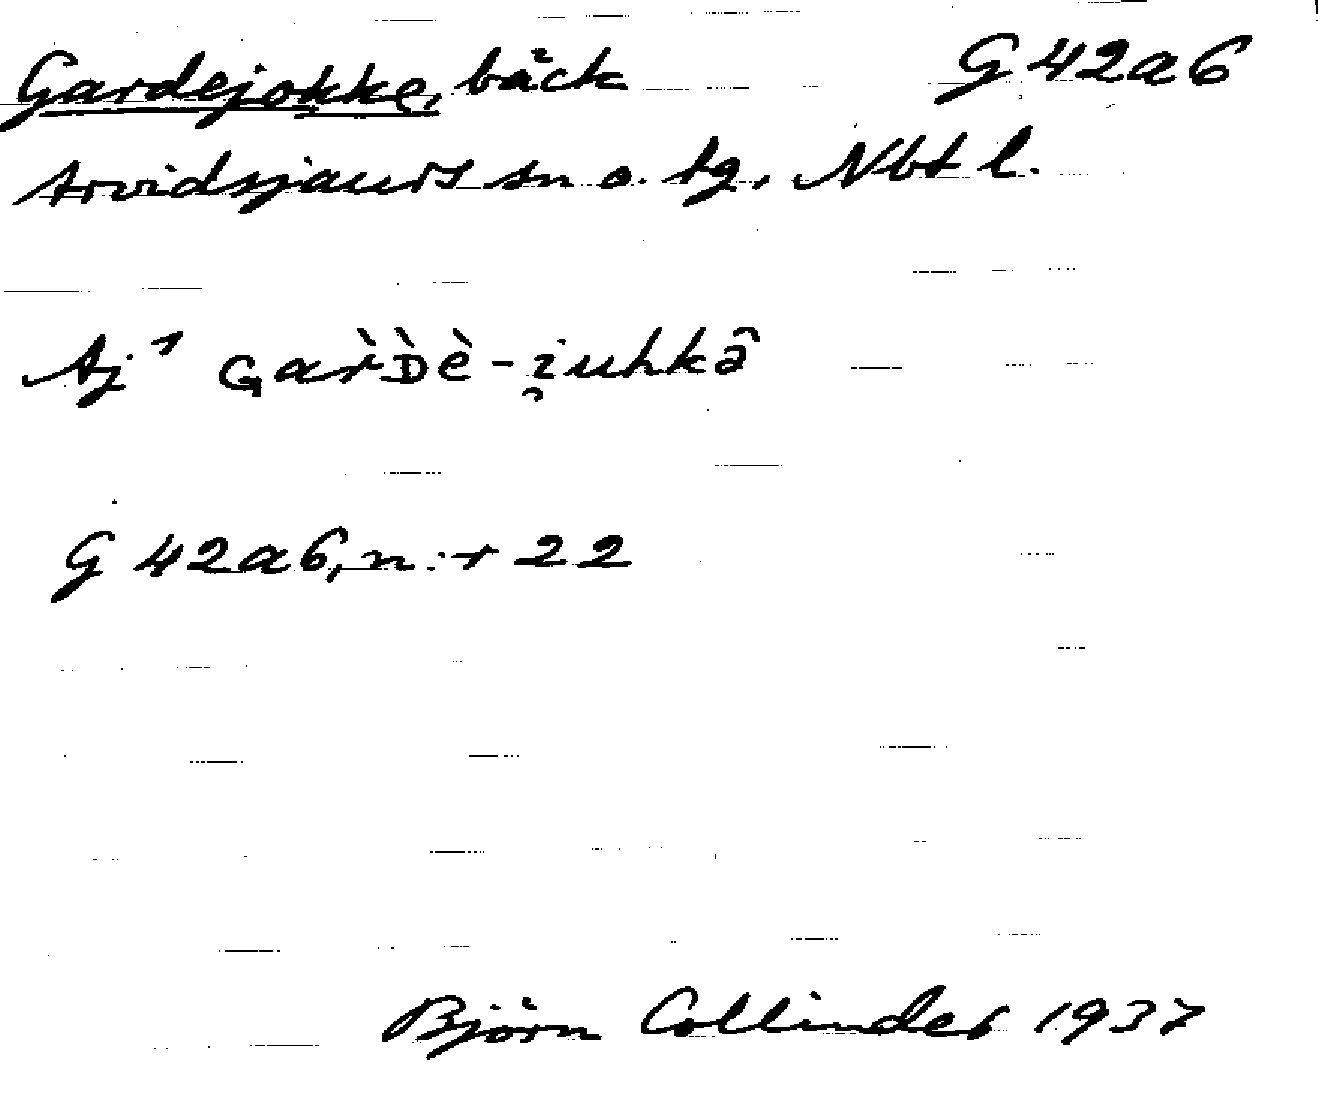 Gardejokke, bäck G 42a6
Arvidsjaurs sn o. tg, Nbt l.
Aj¹ Gar̀D̀è-i̯uhkâ
G 42a6, n:r 22
Björn Collinder 1937